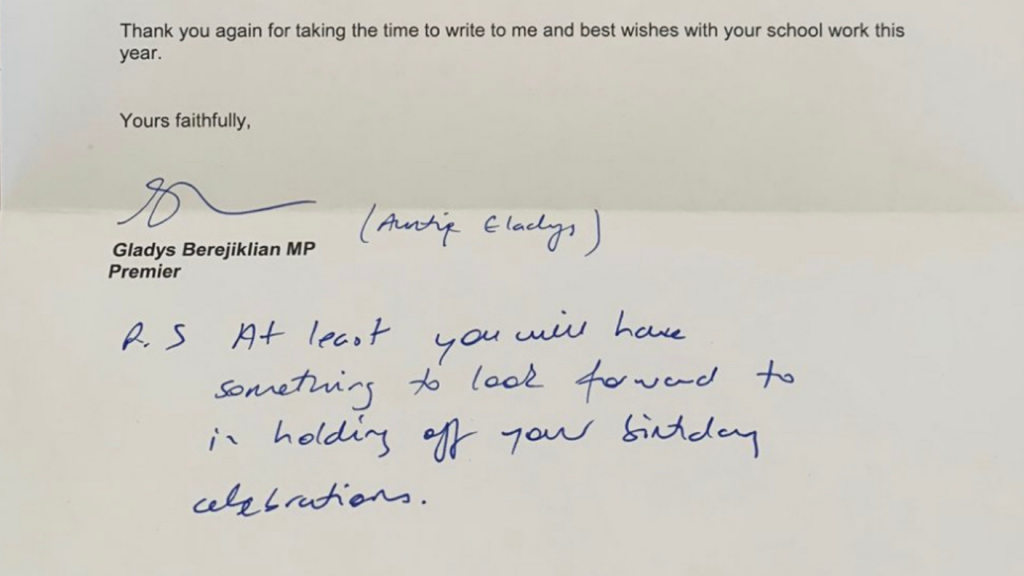 Thank you again for taking the time to write to me and best wishes with your school work this
year.
Yours faithfully,
(Auntie Gladys)
Gladys Berejiklian MP
Premier
P.S At least you will have
something to look forward to
in holding off your birthday
celebrations.